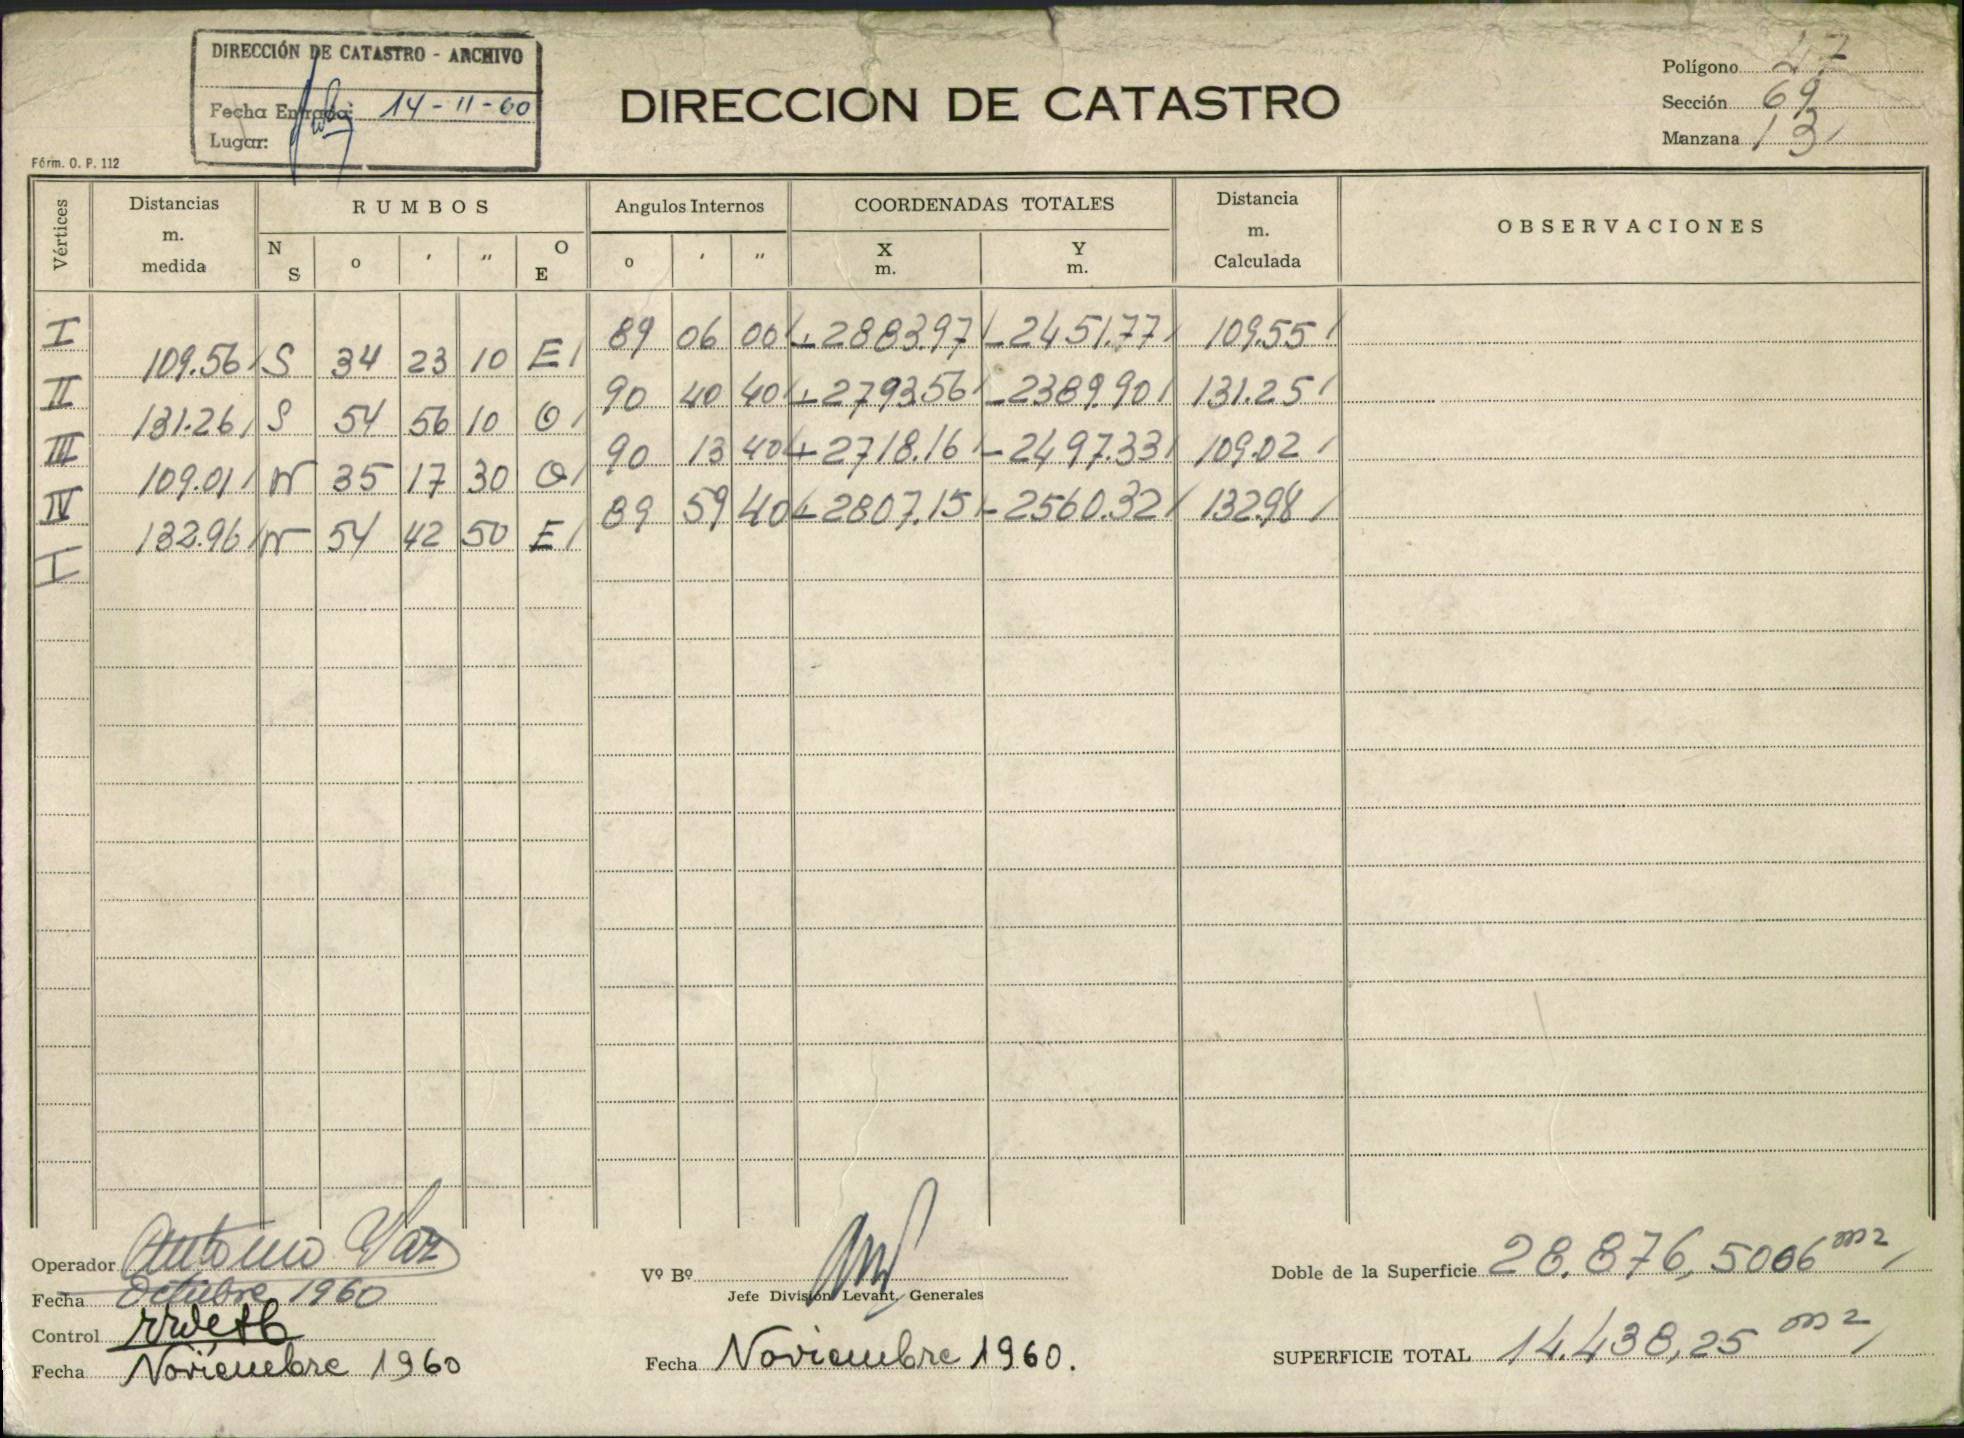 DIRECCIÓN DE CATASTRO - ARCHIVO
Fecha Entrada: 14-11-60
Lugar:
DIRECCION DE CATASTRO
Polígono 27
Sección 69
Manzana 13
Fórm. O. P. 112
Vértices Distancias m. medida RUMBOS Angulos Internos COORDENADAS TOTALES Distancia m. Calculada OBSERVACIONES
N S o ' " O E o ' " X m. Y m.
I 89 06 00 +2883.97 -2451.77 109.55
109.56 S 34 23 10 E
II 90 40 40 +2793.56 -2389.90 131.25
131.26 S 54 56 10 O
III 90 13 40 +2718.16 -2497.33 109.02
109.01 N 35 17 30 O
IV 89 59 40 +2807.15 -2560.32 132.98
132.96 N 54 42 50 E
I
Operador Antonio Vaz
Fecha Octubre 1960
Control
Fecha Noviembre 1960
Vº Bº
Jefe División Levant. Generales
Fecha Noviembre 1960.
Doble de la Superficie 28.876,5006 m2
SUPERFICIE TOTAL 14.438,25 m2